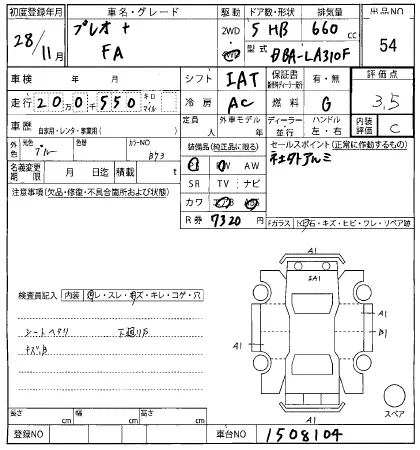 初度登録年月 車名・グレード 駆動 ドア数・形状 排気量 出品NO
28/11月 プレオ+ 2WD 5 HB 660cc 54
FA 4WD 型式 DBA-LA310F
車検 年 月 シフト IAT 保証書 有・無 評価点
走行 20万0千550 キロ・マイル 冷房 AC 燃料 G 3.5
車歴 自家用・レンタ・事業用( ) 定員 人 外車モデル 年 ディーラー・並行 ハンドル 左・右 内装評価 C
外色 元色 ブルー 色替 カラーNO B73 装備品(純正品に限る) セールスポイント(正常に作動するもの)
名義変更期限 月 日迄 積載 t PS PW AW 社外アルミ
注意事項(欠品・修復・不具合箇所および状態) SR TV ナビ
カワ エアB ABS
R券 7320円 Fガラス 飛石・キズ・ヒビ・ワレ・リペア跡
A1
SA1
検査員記入 内装 汚レ・スレ・切ズ・キレ・コゲ・穴
シートヘタリ 下廻りS
キズ、凹
A1 A1 B1
A1
スペア
長さ cm 幅 cm 高さ cm
登録NO 車台NO 1508104